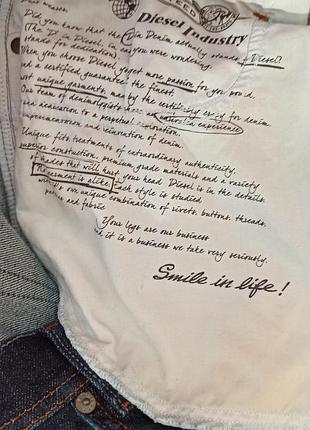 Dear wearer.
Diesel Industry
Did you know that the D in Denim actually stands for Diesel?
(The 'D' in Diesel, in case you were wondering,
stands for dedication).
When you choose Diesel you get more passion for you
and a certified guarantee the finest.
most unique garments, man by the certif for denim.
Our team of denimologists have an natural in experience
and dedication to a perpetual exploration,
experimentation and reinvention of denim.
Unique fits treatments of extraordinary authenticity,
superior constuction, premium grade materials and a variety
of shades that will hurt your head Diesel is in the details.
No garment is alike. Each style is studied
with our unique combination of rivets, buttons, threads,
and fabric
Your legs are our business
and it is a business we take very seriously.
Smile in life!